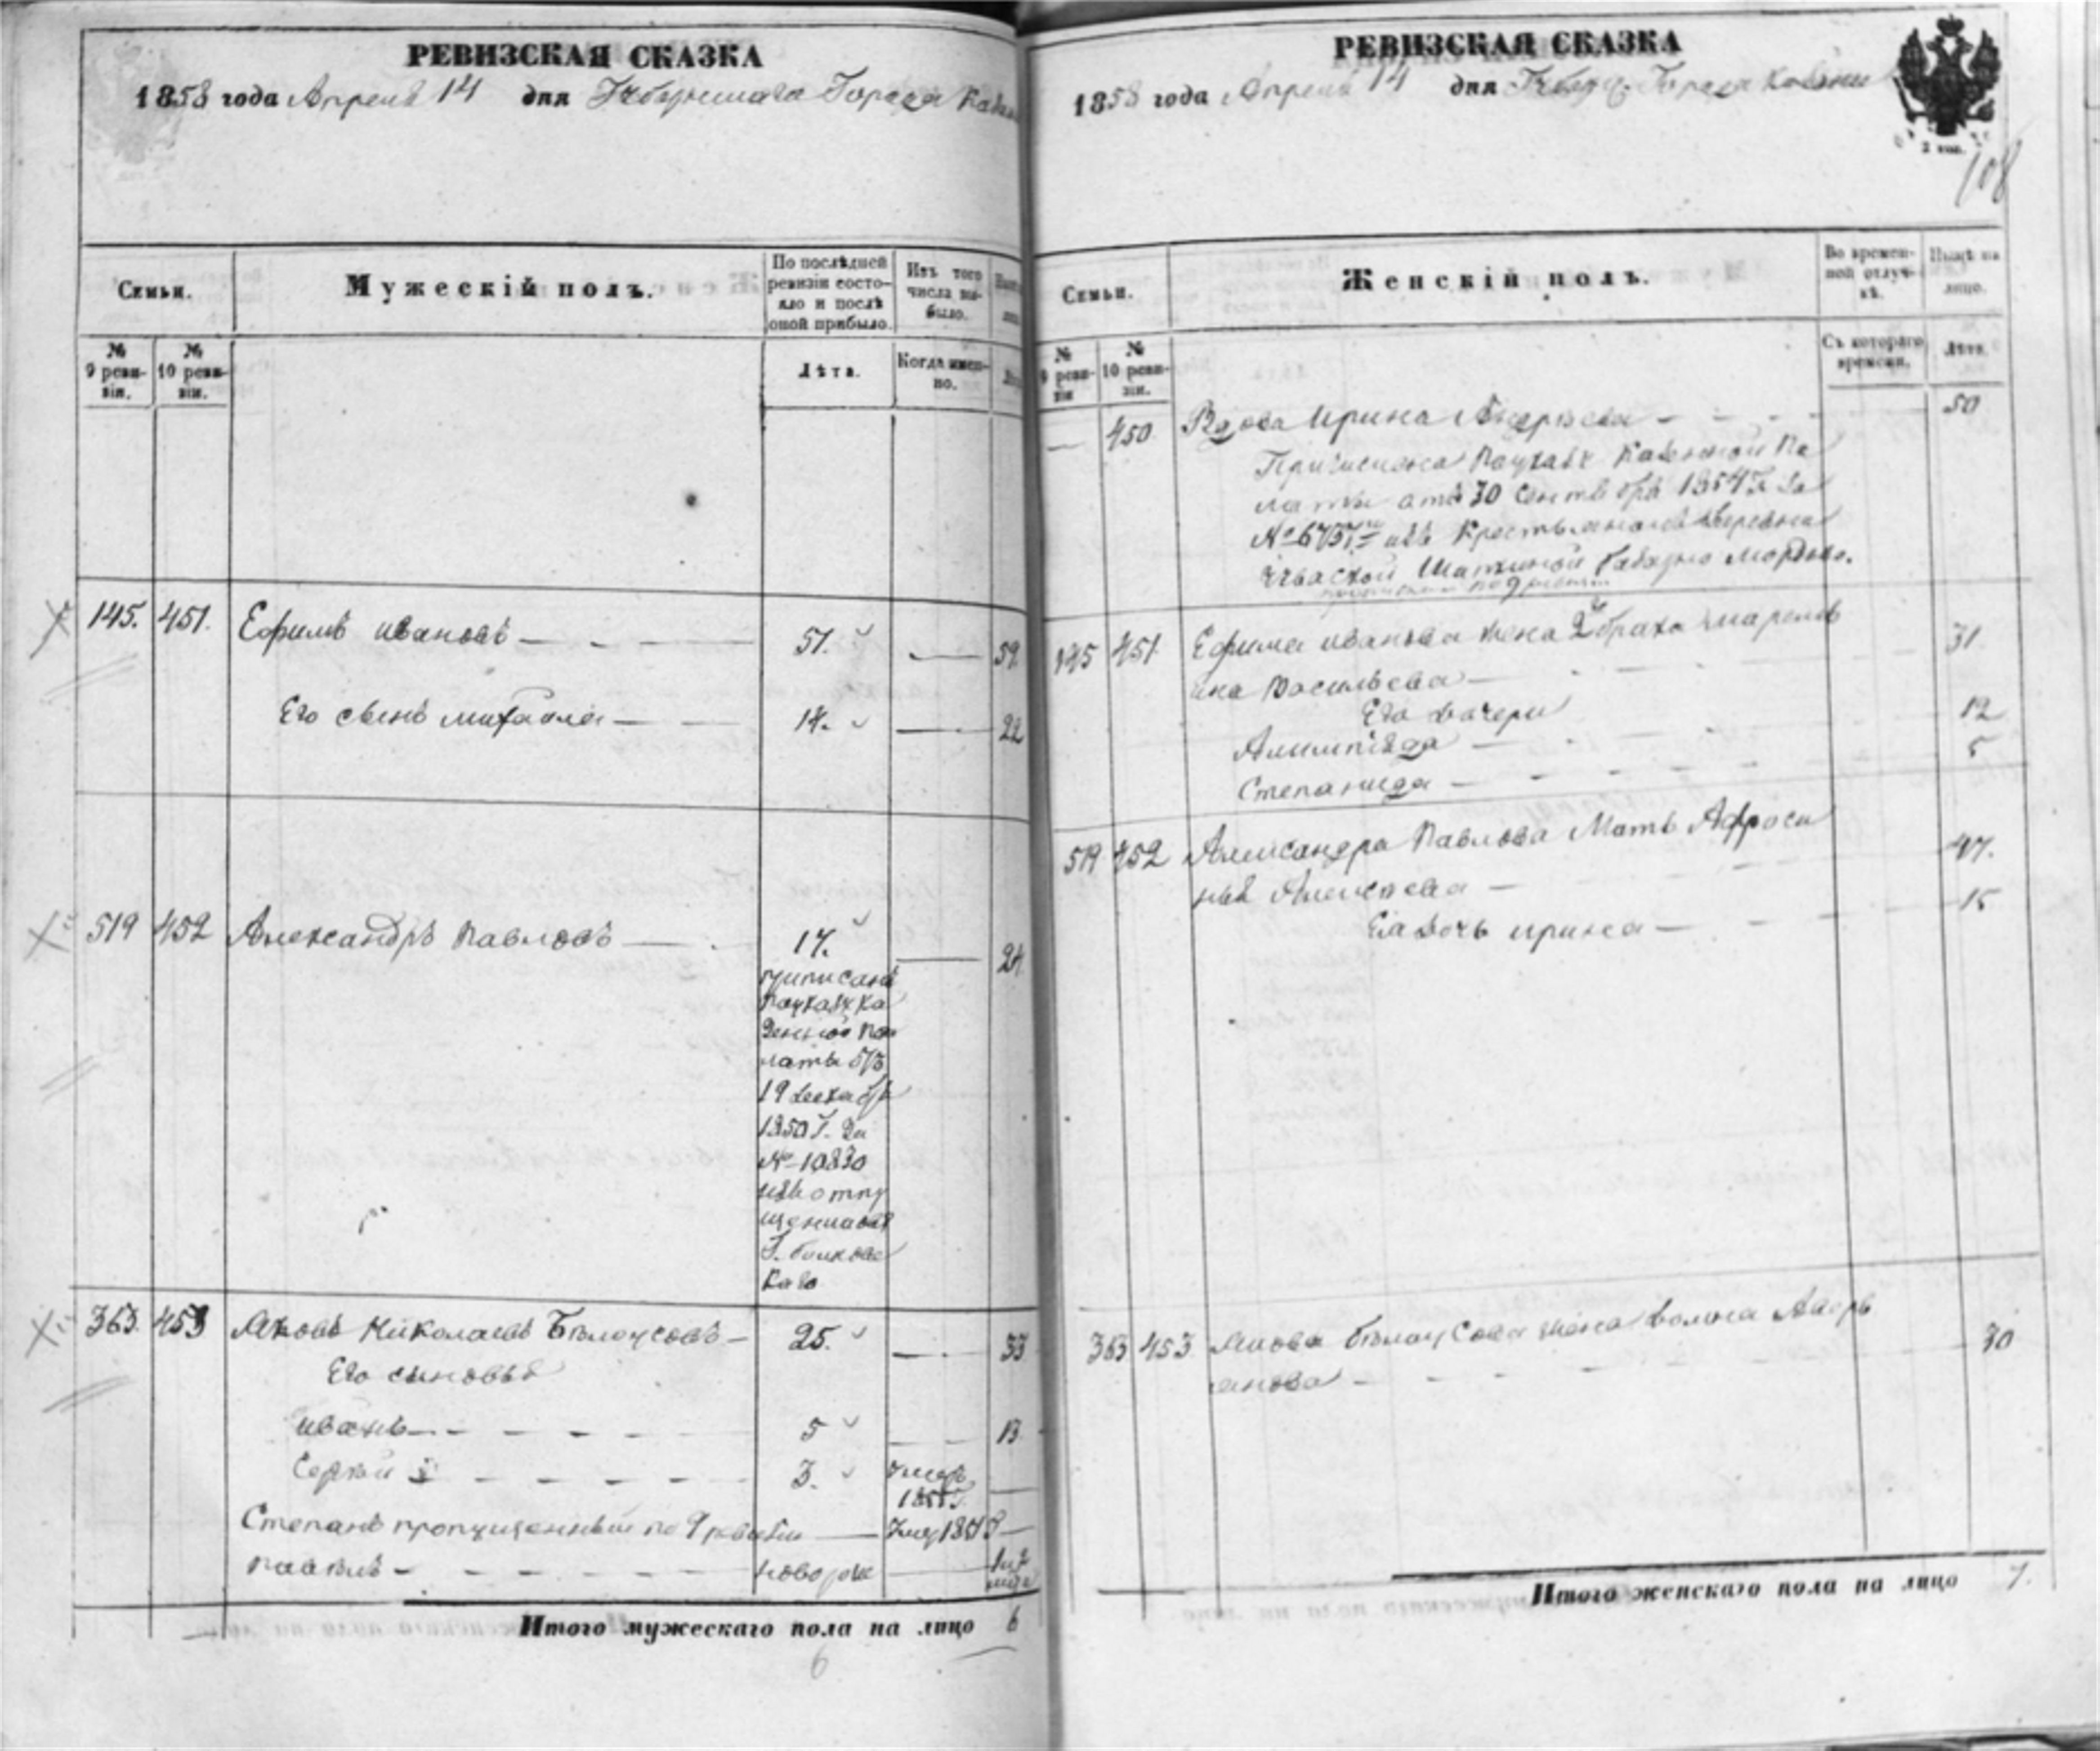 РЕВИЗСКАЯ СКАЗКА
1858 года Апреля 14 дня Губернскаго Города Казани
Семьи.
Мужескій полъ.
По послѣдней ревизіи состояло и послѣ оной прибыло.
Изъ того числа выбыло.
№ 9 ревизіи.
№ 10 ревизіи.
Лѣта.
Когда именно.
145. 451. Ефимъ Ивановъ 51. 59.
Его сынъ Михаила 14. 22
519 452 Александръ Павловъ 17. 24.
приписанъ
по указу Ка
зенной Па
латы отъ
19 декабря
1850 г. за
№ 10830
изъ отпу
щенныхъ
Г.
каго
363. 453 Яковъ Николаевъ Бѣлоусовъ 25. 33
Его сыновья
Иванъ 5 13.
Сергѣй 3. умеръ
185 г.
Степанъ пропущенный по 9 ревизіи умер 185
Павелъ новорож
Итого мужескаго пола на лицо 6
6
РЕВИЗСКАЯ СКАЗКА
1858 года Апреля 14 дня Губерн. Города Казани
2 коп.
108
Семьи.
Женскій полъ.
Во временной отлучкѣ.
Нынѣ на лицо.
№ 9 ревизіи
№ 10 ревизіи.
Съ котораго времени.
Лѣта.
450. Вдова Ирина Андреева 50
Причислена по указу Казенной Па
латы отъ 30 Сентября 1854 г. за
№ изъ Крестьянокъ деревни
по 9 ревизіи
145 451 Ефима Иванова жена 2го брака
ина Васильева 31
Его дочери
Алимпіада 12
Степанида 5
519 452 Александра Павлова Мать Афроси
нья Алексеева 47.
Ея дочь Ирина 15
363 453 Якова Бѣлоусова жена
анова 30
Итого женскаго пола на лицо 7.